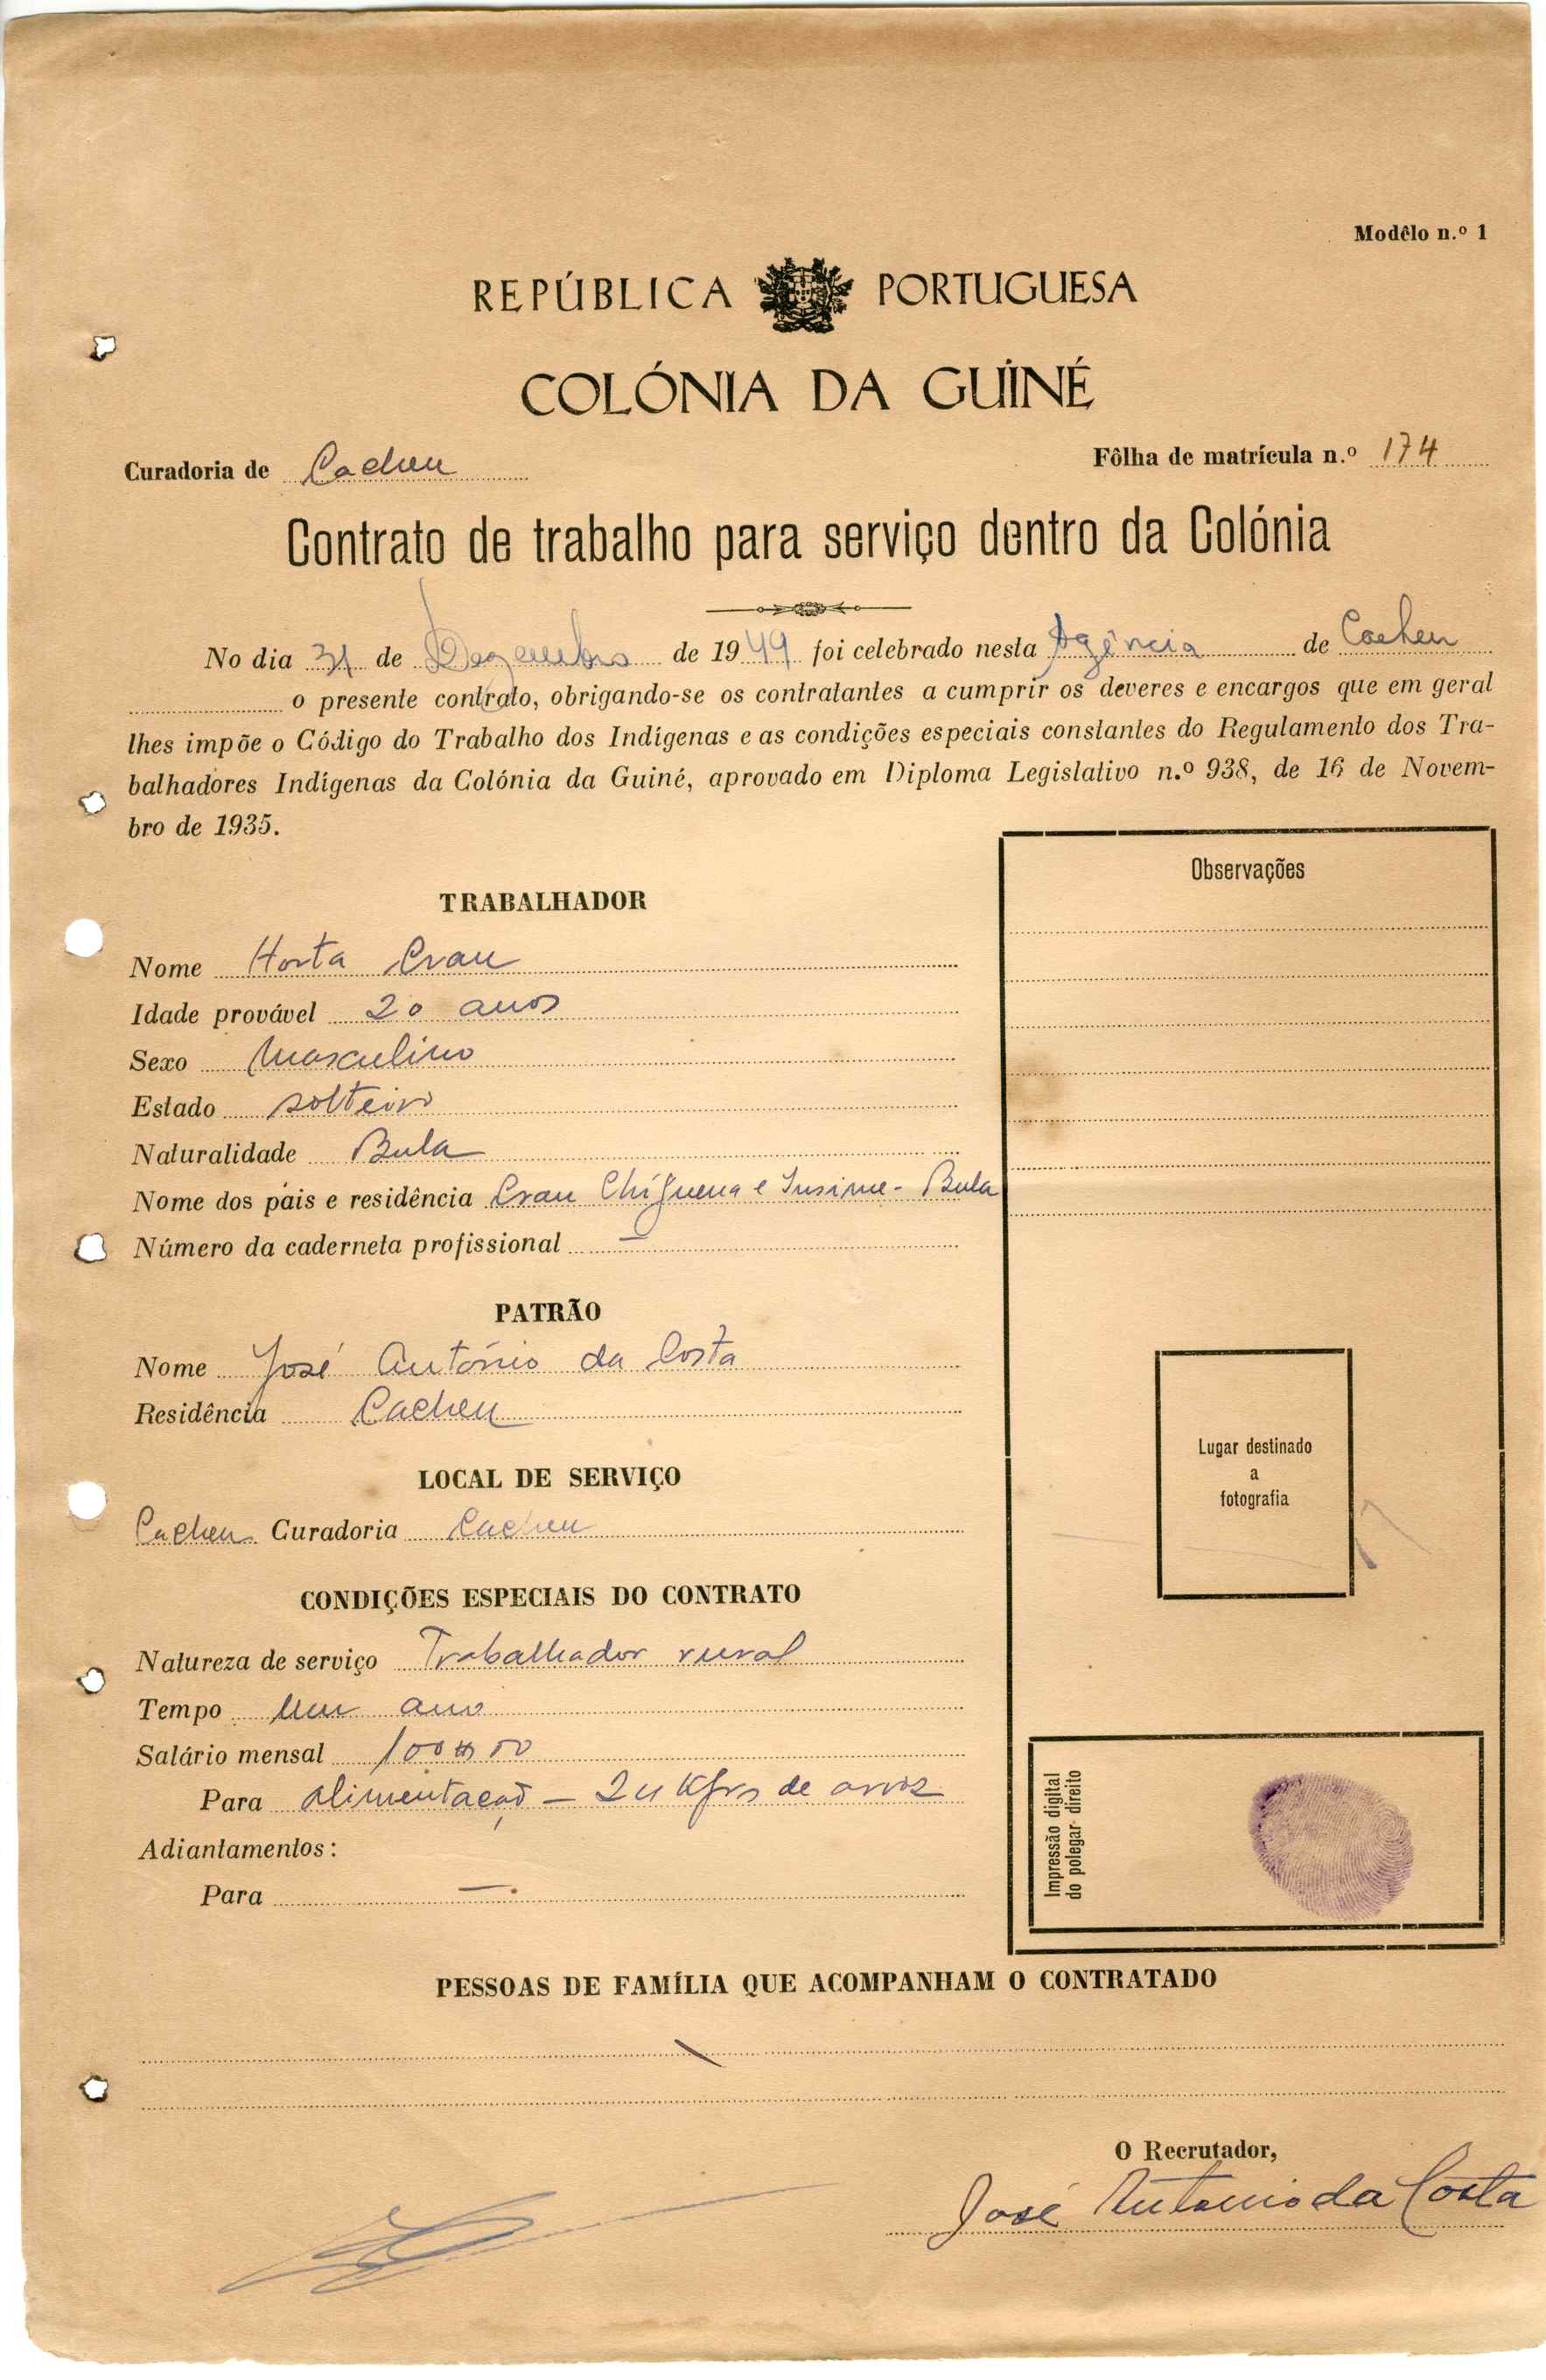 Modêlo n.º 1
REPÚBLICA PORTUGUESA
COLÓNIA DA GUINÉ
Curadoria de Cacheu Fôlha de matrícula n.º 174
Contrato de trabalho para serviço dentro da Colónia
No dia 31 de Dezembro de 1949 foi celebrado nesta Agência de Cacheu
o presente contrato, obrigando-se os contratantes a cumprir os deveres e encargos que em geral
lhes impõe o Código do Trabalho dos Indígenas e as condições especiais constantes do Regulamento dos Tra-
balhadores Indígenas da Colónia da Guiné, aprovado em Diploma Legislativo n.º 938, de 16 de Novem-
bro de 1935.
Observações
TRABALHADOR
Nome Horta Crau
Idade provável 20 anos
Sexo Masculino
Estado solteiro
Naturalidade Bula
Nome dos pais e residência Crau e - Bula
Número da caderneta profissional —
PATRÃO
Nome José António da Costa
Residência Cacheu
LOCAL DE SERVIÇO
Cacheu Curadoria Cacheu
Lugar destinado
a
fotografia
CONDIÇÕES ESPECIAIS DO CONTRATO
Natureza de serviço Trabalhador rural
Tempo Um ano
Salário mensal 100$00
Para alimentação — de arroz
Adiantamentos:
Para —
Impressão digital
do polegar direito
PESSOAS DE FAMÍLIA QUE ACOMPANHAM O CONTRATADO
O Recrutador,
José Antonio da Costa